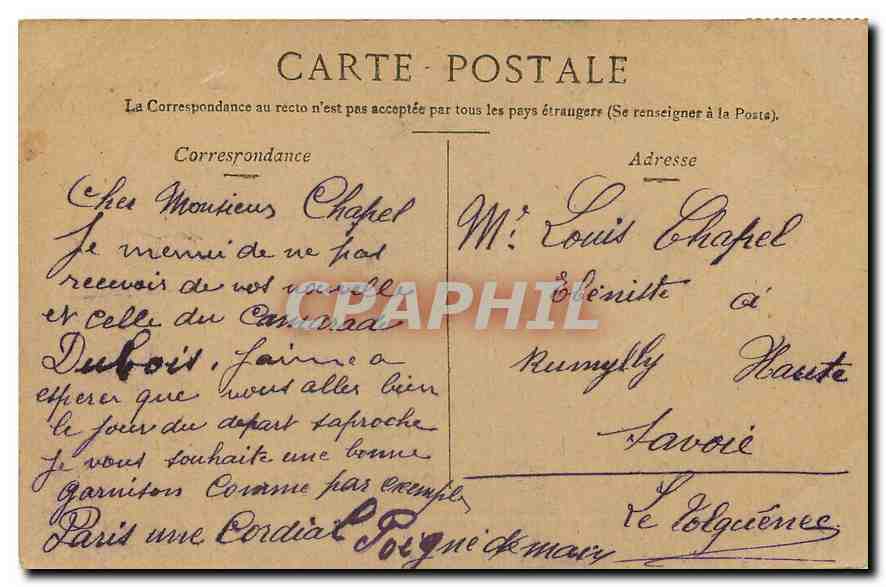 CARTE POSTALE
La Correspondance au recto n'est pas acceptée par tous les pays étrangers (Se renseigner à la Poste).
Correspondance
Cher Monsieur Chapel
Je mennui de ne pas
recevoir de vos nouvelle
et celle du Camarade
Dubois. J'aime a
esperer que vous aller bien
le jour du depart saproche
je vous souhaite une bonne
garnison comme par exemple
Paris une Cordial Poigné de main
Adresse
Mr. Louis Chapel
Ebéniste à
Rumylly Haute
Savoie
Le Tolguénec
CPAPHIL